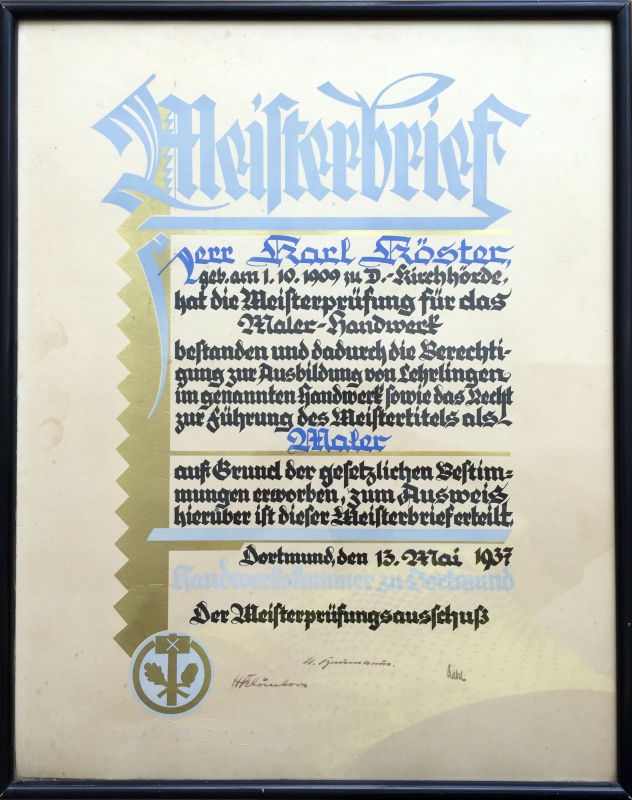 Meisterbrief
Herr Karl Köster,
geb. am 1. 10. 1909 zu D.-Kirchhörde,
hat die Meisterprüfung für das
Maler-Handwerk
bestanden und dadurch die Berechti-
gung zur Ausbildung von Lehrlingen
im genannten Handwerk sowie das Recht
zur Führung des Meistertitels als
Maler
auf Grund der gesetzlichen Bestim-
mungen erworben, zum Ausweis
hierüber ist dieser Meisterbrief erteilt.
Dortmund, den 13. Mai 1937
Handwerkskammer zu Dortmund
Der Meisterprüfungsausschuß